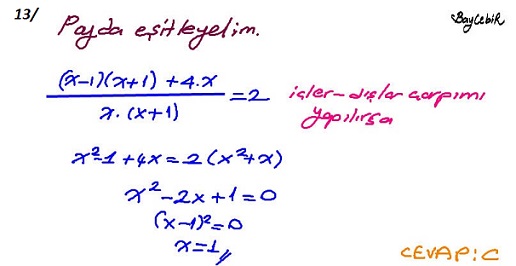 13/
Payda eşitleyelim.
BayCebiR
(x-1)(x+1) + 4.x
x. (x+1)
=2
içler-dışlar çarpımı
yapılırsa
x²-1 + 4x = 2(x²+x)
x² - 2x + 1 = 0
(x-1)² = 0
x = 1,,
CEVAP: C